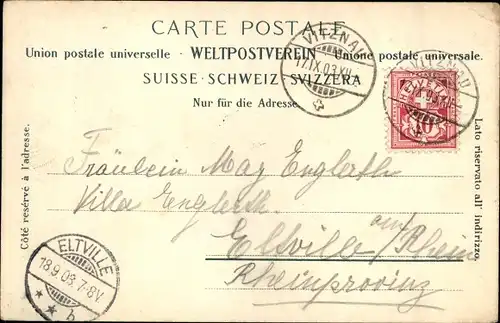 CARTE POSTALE.
Union postale universelle - WELTPOSTVEREIN - Unione postale universale.
SUISSE - SCHWEIZ - SVIZZERA
Nur für die Adresse.
VITZNAU
17.IX.03.XII
VITZNAU
17.IX.03.XII
10
Côté reservé à l'adresse.
Lato riservato all' indirizzo.
Fräulein May Englerth
Villa Englerth
Eltville am/Rhein
Rheinprovinz
ELTVILLE
18.9.03. 7-8V
* * b